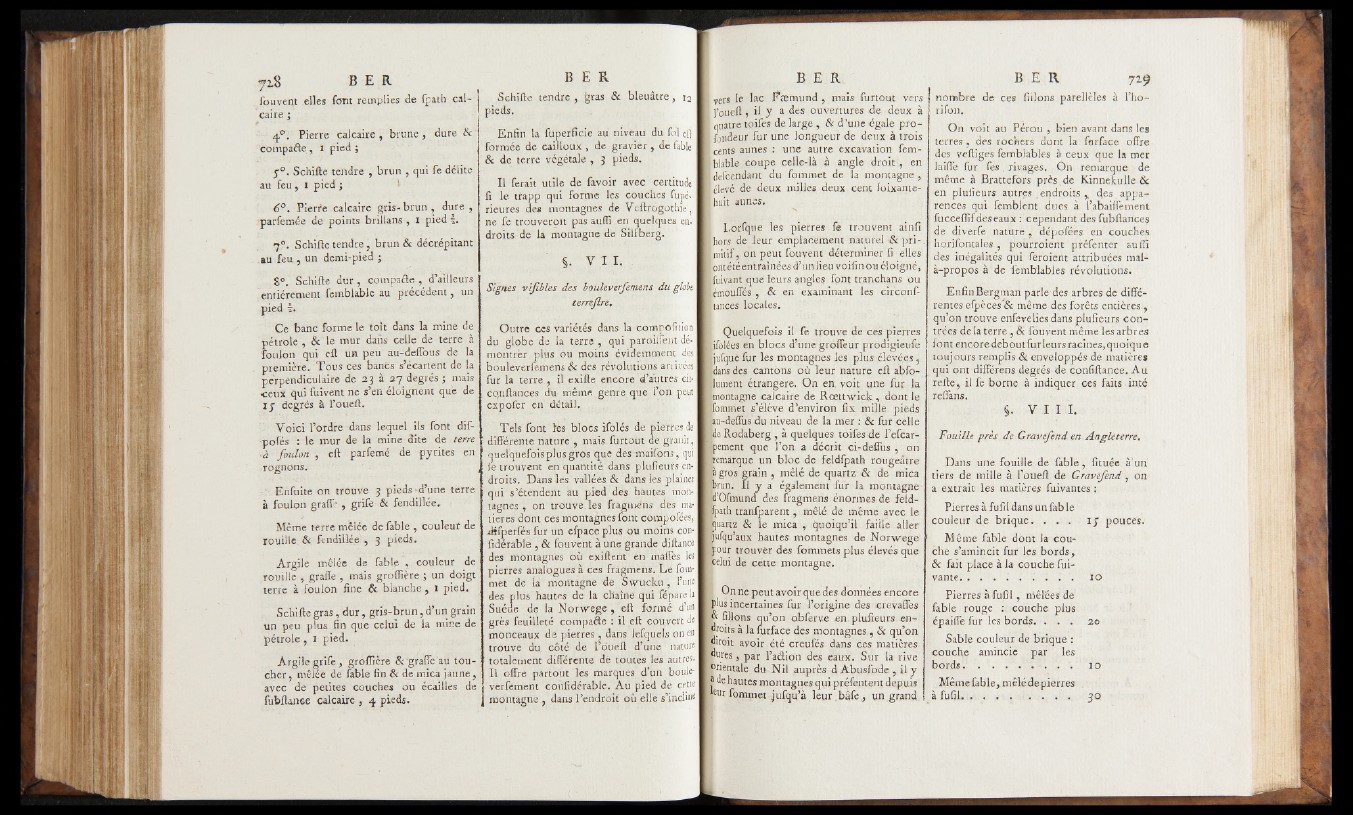 728 BER
souvent elles sont remplies de spath cal-
caire ;
4°. Pierre calcaire, brune, dure &
compacte, 1 pied ;
5°. Schiste tendre, brun, qui se délite
au feu, 1 pied ;
6°. Pierre calcaire gris-brun, dure,
parsemée de points brillans, 1 pied ½.
7°. Schiste tendre, brun & décrépitant
au feu, un demi-pied ;
8°. Schiste dur, compacte, d'ailleurs
entiérement semblable au précédent, un
pied ½.
Ce banc forme le toît dans la mine de
pétrole, & le mur dans celle de terre à
foulon qui est un peu au-dessous de la
première. Tous ces bancs s'écartent de la
perpendiculaire de 23 à 27 degrés ; mais
ceux qui suivent ne s'en éloignent que de
15 degrés à l'ouest.
Voici l'ordre dans lequel ils sont dis-
posés : le mur de la mine dite de terre
à foulon, est parsemé de pyrites en
rognons.
Ensuite on trouve 3 pieds d'une terre
à foulon grasse, grise & fendillée.
Même terre mêlée de sable, couleur de
rouille & fendillée, 3 pieds.
Argile mêlée de sable, couleur de
rouille, grasse, mais grossière ; un doigt
terre à foulon fine & blanche, 1 pied.
Schiste gras, dur, gris-brun, d'un grain
un peu plus fin que celui de la mine de
pétrole, 1 pied.
Argile grise, grossière & grasse au tou-
cher, mêlée de sable fin & de mica jaune,
avec de petites couches ou écailles de
substance calcaire, 4 pieds.
BER
Schiste tendre, gras & bleuâtre, 12
pieds.
Enfin la superficie au niveau du sol est
formée de cailloux, de gravier, de sable
& de terre végétale, 3 pieds.
Il serait utile de savoir avec certitude
si le trapp qui forme les couches supé-
rieures des montagnes de Vestrogothie,
ne se trouveroit pas aussi en quelques en-
droits de la montagne de Silsberg.
§. VII.
Signes visibles des bouleversemens du globe
terrestre.
Outre ces variétés dans la composition
du globe de la terre, qui paroissent dé-
montrer plus ou moins évidemment des
bouleversemens & des révolutions arrivées
sur la terre, il existe encore d'autres cir-
constances du même genre que l'on peut
exposer en détail.
Tels sont les blocs isolés de pierres de
différente nature, mais surtout de granit,
quelquefois plus gros que des maisons, qui
se trouvent en quantité dans plusieurs en-
droits. Dans les vallées & dans les plaines
qui s'étendent au pied des hautes mon-
tagnes, on trouve les fragmens des ma-
tieres dont ces montagnes sont composées,
dispersés sur un espace plus ou moins con-
sidérable, & souvent à une grande distance
des montagnes où existent en masses les
pierres analogues à ces fragmens. Le som-
met de la montagne de Swucku, l'une
des plus hautes de la chaîne qui sépare la
Suède de la Norwege, est formé d'un
grès feuilleté compacte : il est couvert de
monceaux de pierres, dans lesquels on en
trouve du côté de l'ouest d'une nature
totalement différente de toutes les autres.
Il offre partout les marques d'un boule-
versement considérable. Au pied de cette
montagne, dans l'endroit où elle s'incline
BER
vers le lac Fæmund, mais surtout vers
l'ouest, il y a des ouvertures de deux à
quatre toises de large, & d'une égale pro-
fondeur sur une longueur de deux à trois
cents aunes : une autre excavation sem-
blable coupe celle-là à angle droit, en
descendant du sommet de la montagne,
élevé de deux milles deux cent soixante-
huit aunes.
Lorsque les pierres se trouvent ainsi
hors de leur emplacement naturel & pri-
mitif, on peut souvent déterminer si elles
ont été entraînées d'un lieu voisin ou éloigné,
suivant que leurs angles sont tranchans ou
émoussés, & en examinant les circonf-
tances locales.
Quelquefois il se trouve de ces pierres
isolées en blocs d'une grosseur prodigieuse
jusque sur les montagnes les plus élevées,
dans des cantons où leur nature est abso-
lument étrangere. On en voit une sur la
montagne calcaire de Rœttwick, dont le
sommet s'élève d'environ six mille pieds
au-dessus du niveau de la mer : & sur celle
de Rodaberg, à quelques toises de l'escar-
pement que l'on a décrit ci-dessus, on
remarque un bloc de feldspath rougeâtre
à gros grain, mêlé de quartz & de mica
brun. Il y a également sur la montagne
d'Osmund des fragmens énormes de feld-
spath transparent, mêlé de même avec le
quartz & le mica, quoiqu'il faille aller
jusqu'aux hautes montagnes de Norwege
pour trouver des sommets plus élevés que
celui de cette montagne.
On ne peut avoir que des données encore
plus incertaines sur l'origine des crevasses
& sillons qu'on observe en plusieurs en-
droits à la surface des montagnes, & qu'on
diroit avoir été creusés dans ces matières
dures, par l'action des eaux. Sur la rive
orientale du Nil auprès d'Abusfode, il y
a de hautes montagnes qui présentent depuis
leur sommet jusqu'à leur base, un grand
BER 729
nombre de ces sillons parellèles à l'ho-
rison.
On voit au Pérou, bien avant dans les
terres, des rochers dont la surface offre
des vestiges semblables à ceux que la mer
laisse sur ses rivages. On remarque de
même à Brattefors près de Kinnekulle &
en plusieurs autres endroits, des appa-
rences qui semblent dues à l'abaissement
successif des eaux : cependant des substances
de diverse nature, déposées en couches
horisontales, pourroient présenter aussi
des inégalités qui seroient attribuées mal-
à-propos à de semblables révolutions.
Enfin Bergman parle des arbres de diffé-
rentes espèces & même des forêts entières,
qu'on trouve ensevelies dans plusieurs con-
trées de la terre, & souvent même les arbres
sont encore debout sur leurs racines, quoique
toujours remplis & enveloppés de matières
qui ont différens degrés de consistance. Au
reste, il se borne à indiquer ces faits inté
ressans.
§. VIII.
Fouille près de Gravesend en Angleterre.
Dans une fouille de sable, située à un
tiers de mille à l'ouest de Gravesend, on
a extrait les matières suivantes :
Pierres à fusil dans un sable
couleur de brique. . . . 15 pouces.
Même sable dont la cou-
che s'amincit sur les bords,
& fait place à la couche sui-
vante. . . . . . . . . . 10
Pierres à fusil, mêlées de
sable rouge : couche plus
épaisse sur les bords. . . . 20
Sable couleur de brique :
couche amincie par les
bords. . . . . . . . . 10
Même sable, mêlé de pierres
à fusil. . . . . . . . . 30